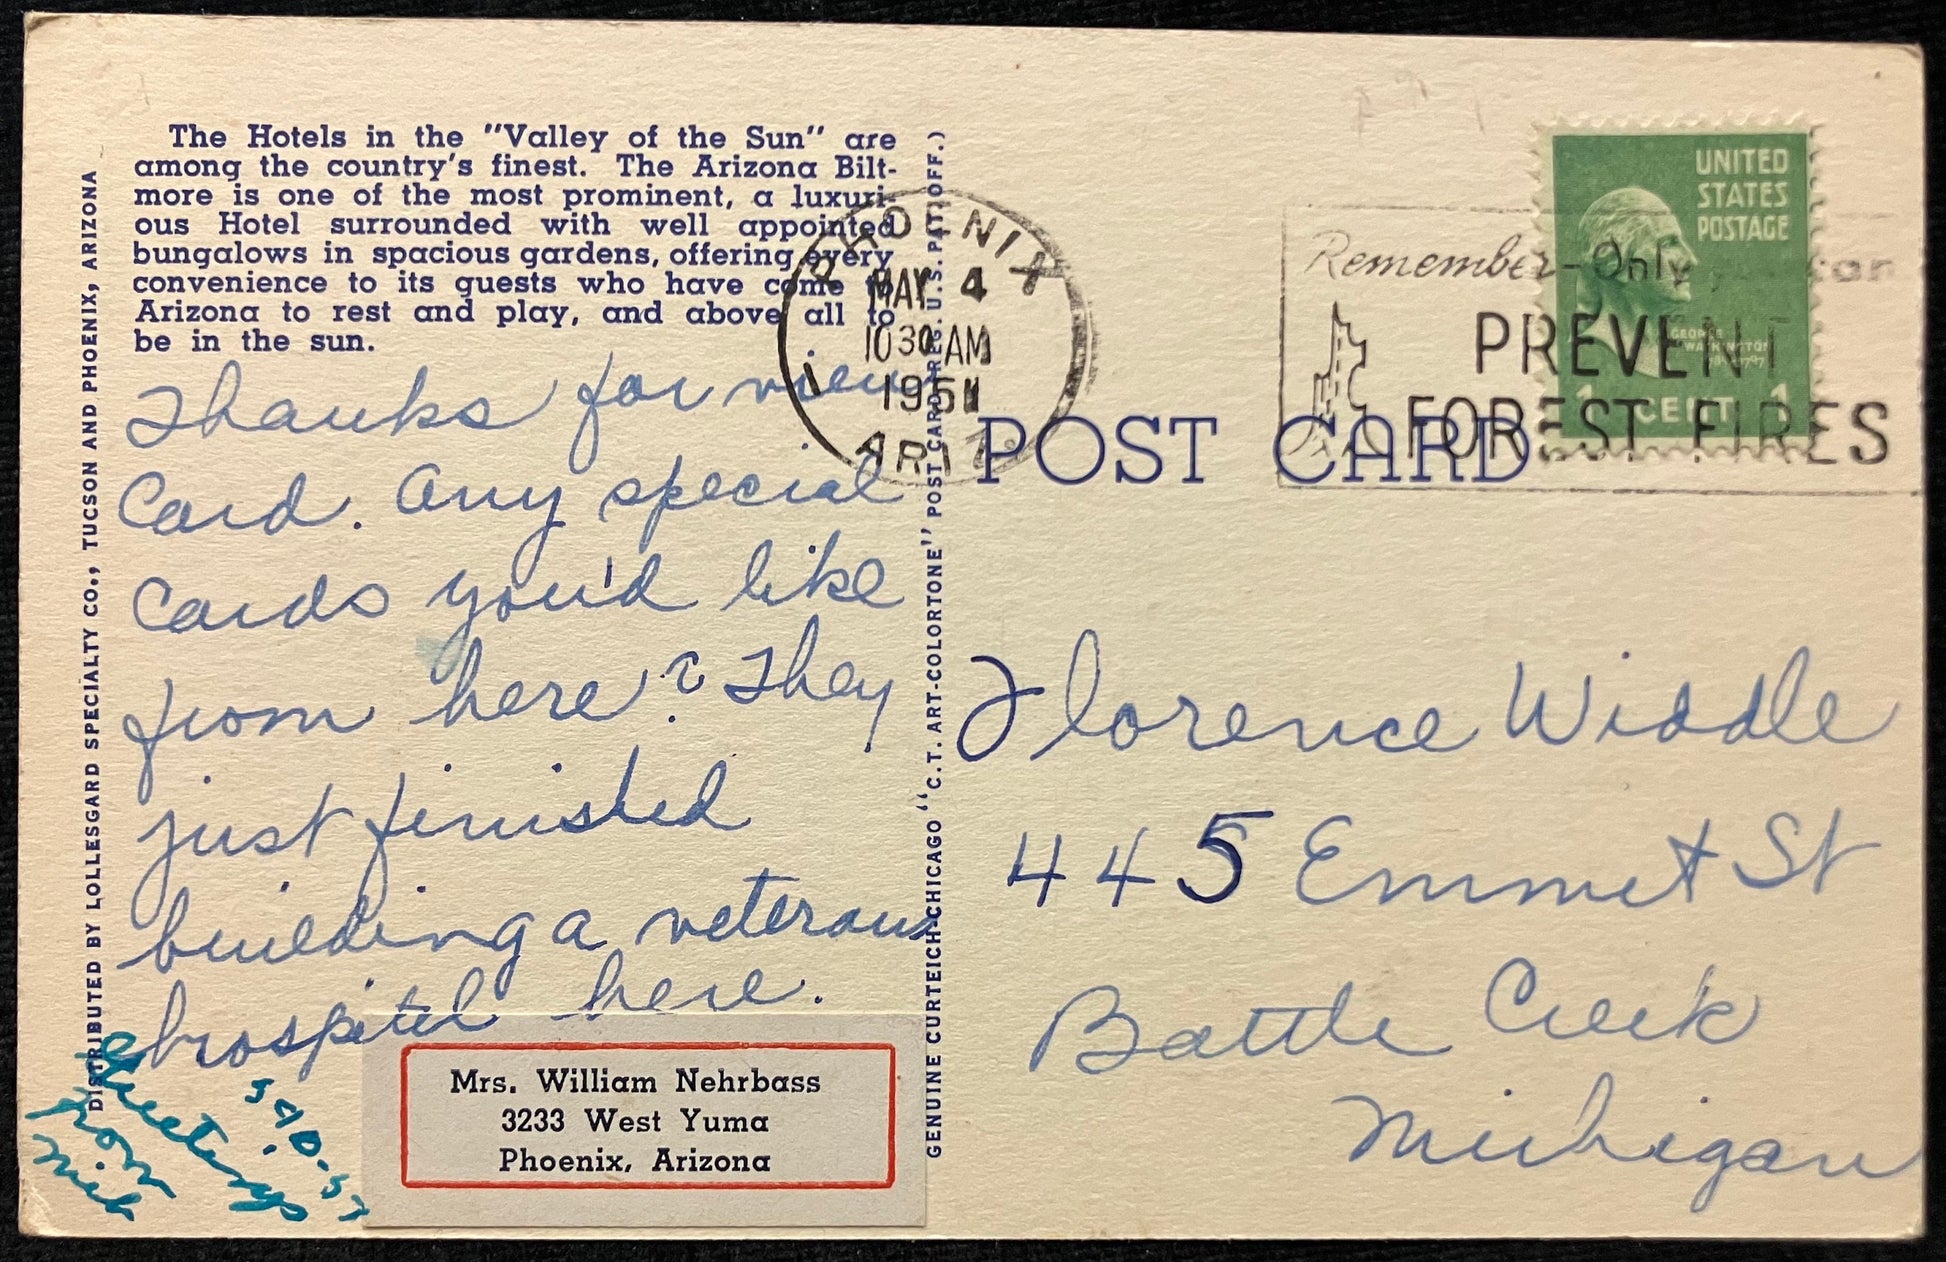 The Hotels in the "Valley of the Sun" are
among the country's finest. The Arizona Bilt-
more is one of the most prominent, a luxuri-
ous Hotel surrounded with well appointed
bungalows in spacious gardens, offering every
convenience to its guests who have come to
Arizona to rest and play, and above all to
be in the sun.
Thanks for view
Card. Any special
Cards you'd like
from here? They
just finished
building a veterans
hospital here.
Greetings
from
Mich
Mrs. William Nehrbass
3233 West Yuma
Phoenix, Arizona
DISTRIBUTED BY LOLLESGARD SPECIALTY CO., TUCSON AND PHOENIX, ARIZONA
GENUINE CURTEICH-CHICAGO "C.T. ART-COLORTONE" POST CARD (REG. U.S. PAT. OFF.)
PHOENIX
MAY 4
10 30 AM
1951
ARIZ.
POST CARD
UNITED
STATES
POSTAGE
GEORGE
WASHINGTON
1 CENT 1
Remember-Only you can
PREVENT
FOREST FIRES
Florence Widdle
445 Emmet St
Battle Creek
Michigan